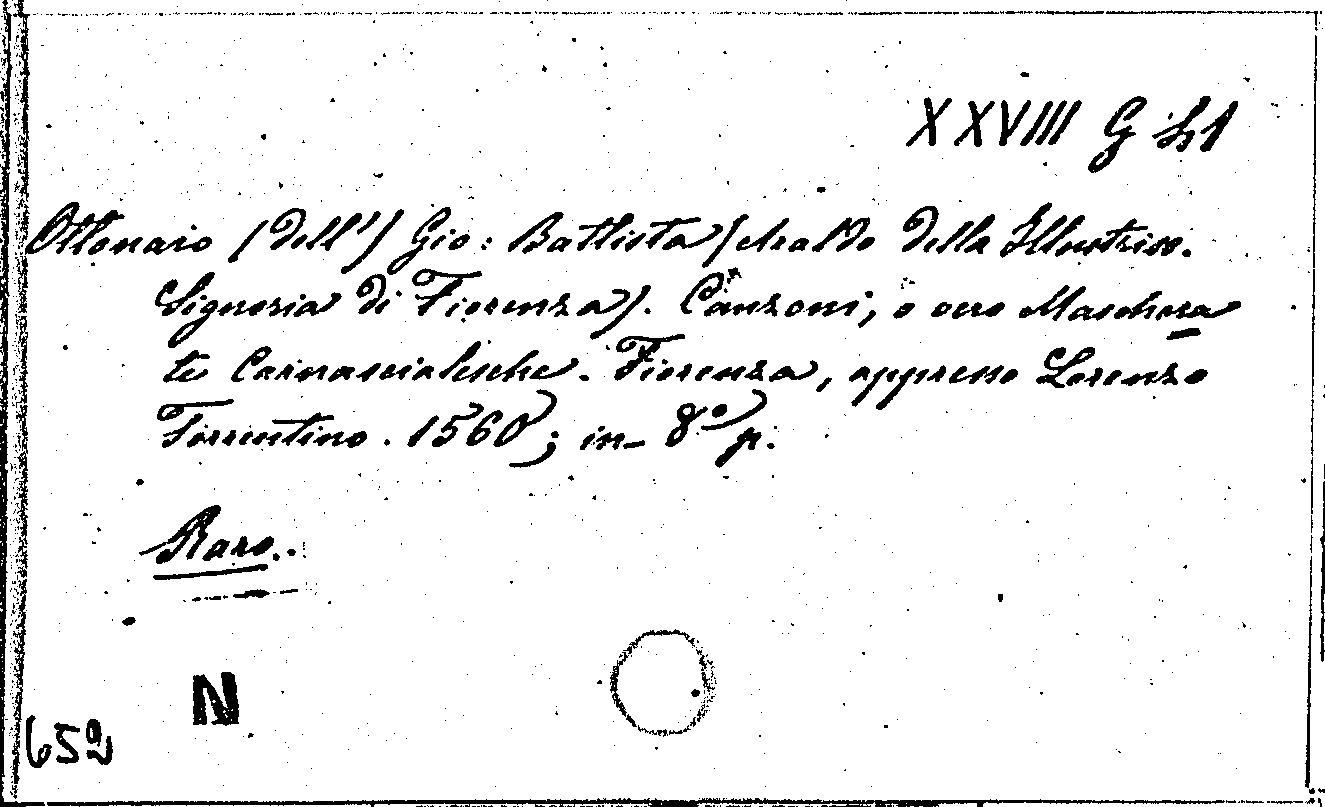 XXVIII G 41
Ottonaio (dell') Gio: Battista (Araldo della Illustriss.
Signoria di Fiorenza). Canzoni, o vero Maschera
te Carnascialesche. Fiorenza, appresso Lorenzo
Torrentino. 1560; in-8° p.
Raro.
N
652